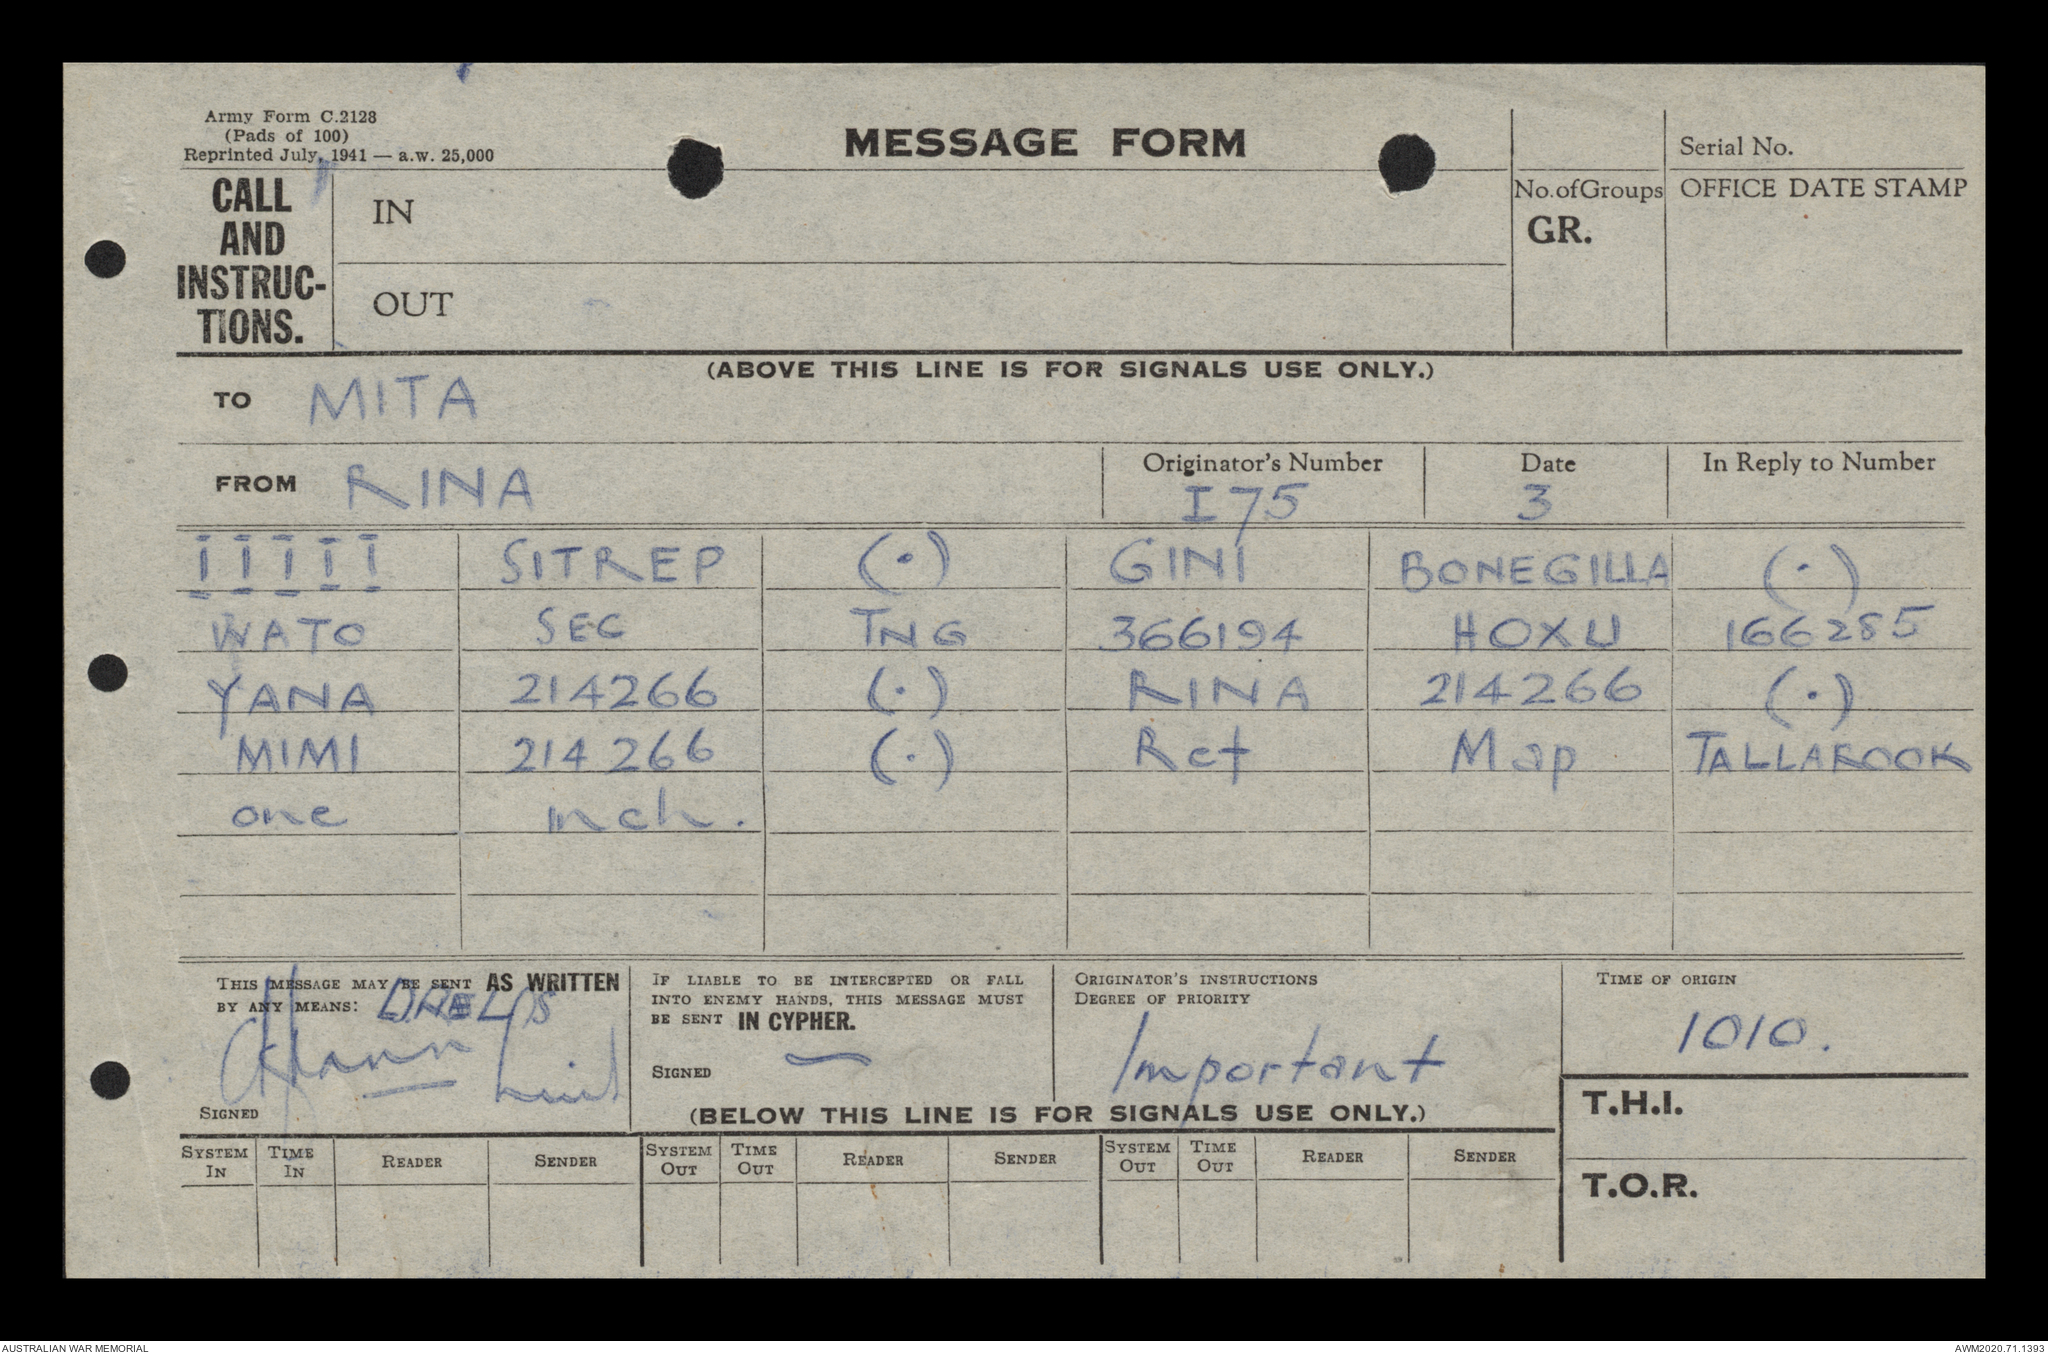 Army Form C.2128
(Pads of 100)
Reprinted July, 1941 — a.w. 25,000
MESSAGE FORM
Serial No.
CALL AND INSTRUC-TIONS.
IN
OUT
No. of Groups
GR.
OFFICE DATE STAMP
(ABOVE THIS LINE IS FOR SIGNALS USE ONLY.)
TO MITA
FROM RINA
Originator's Number I75
Date 3
In Reply to Number
I I I I I SITREP (.) GINI BONEGILLA (.)
WATO SEC TNG 366194 HOXU 166285
YANA 214266 (.) RINA 214266 (.)
MIMI 214266 (.) Ref Map TALLAROOK
one inch.
THIS MESSAGE MAY BE SENT AS WRITTEN
BY ANY MEANS:
SIGNED
IF LIABLE TO BE INTERCEPTED OR FALL
INTO ENEMY HANDS, THIS MESSAGE MUST
BE SENT IN CYPHER.
SIGNED
ORIGINATOR'S INSTRUCTIONS
DEGREE OF PRIORITY
Important
TIME OF ORIGIN
1010.
(BELOW THIS LINE IS FOR SIGNALS USE ONLY.)
T.H.I.
T.O.R.
SYSTEM IN TIME IN READER SENDER SYSTEM OUT TIME OUT READER SENDER SYSTEM OUT TIME OUT READER SENDER
AUSTRALIAN WAR MEMORIAL
AWM2020.71.1393